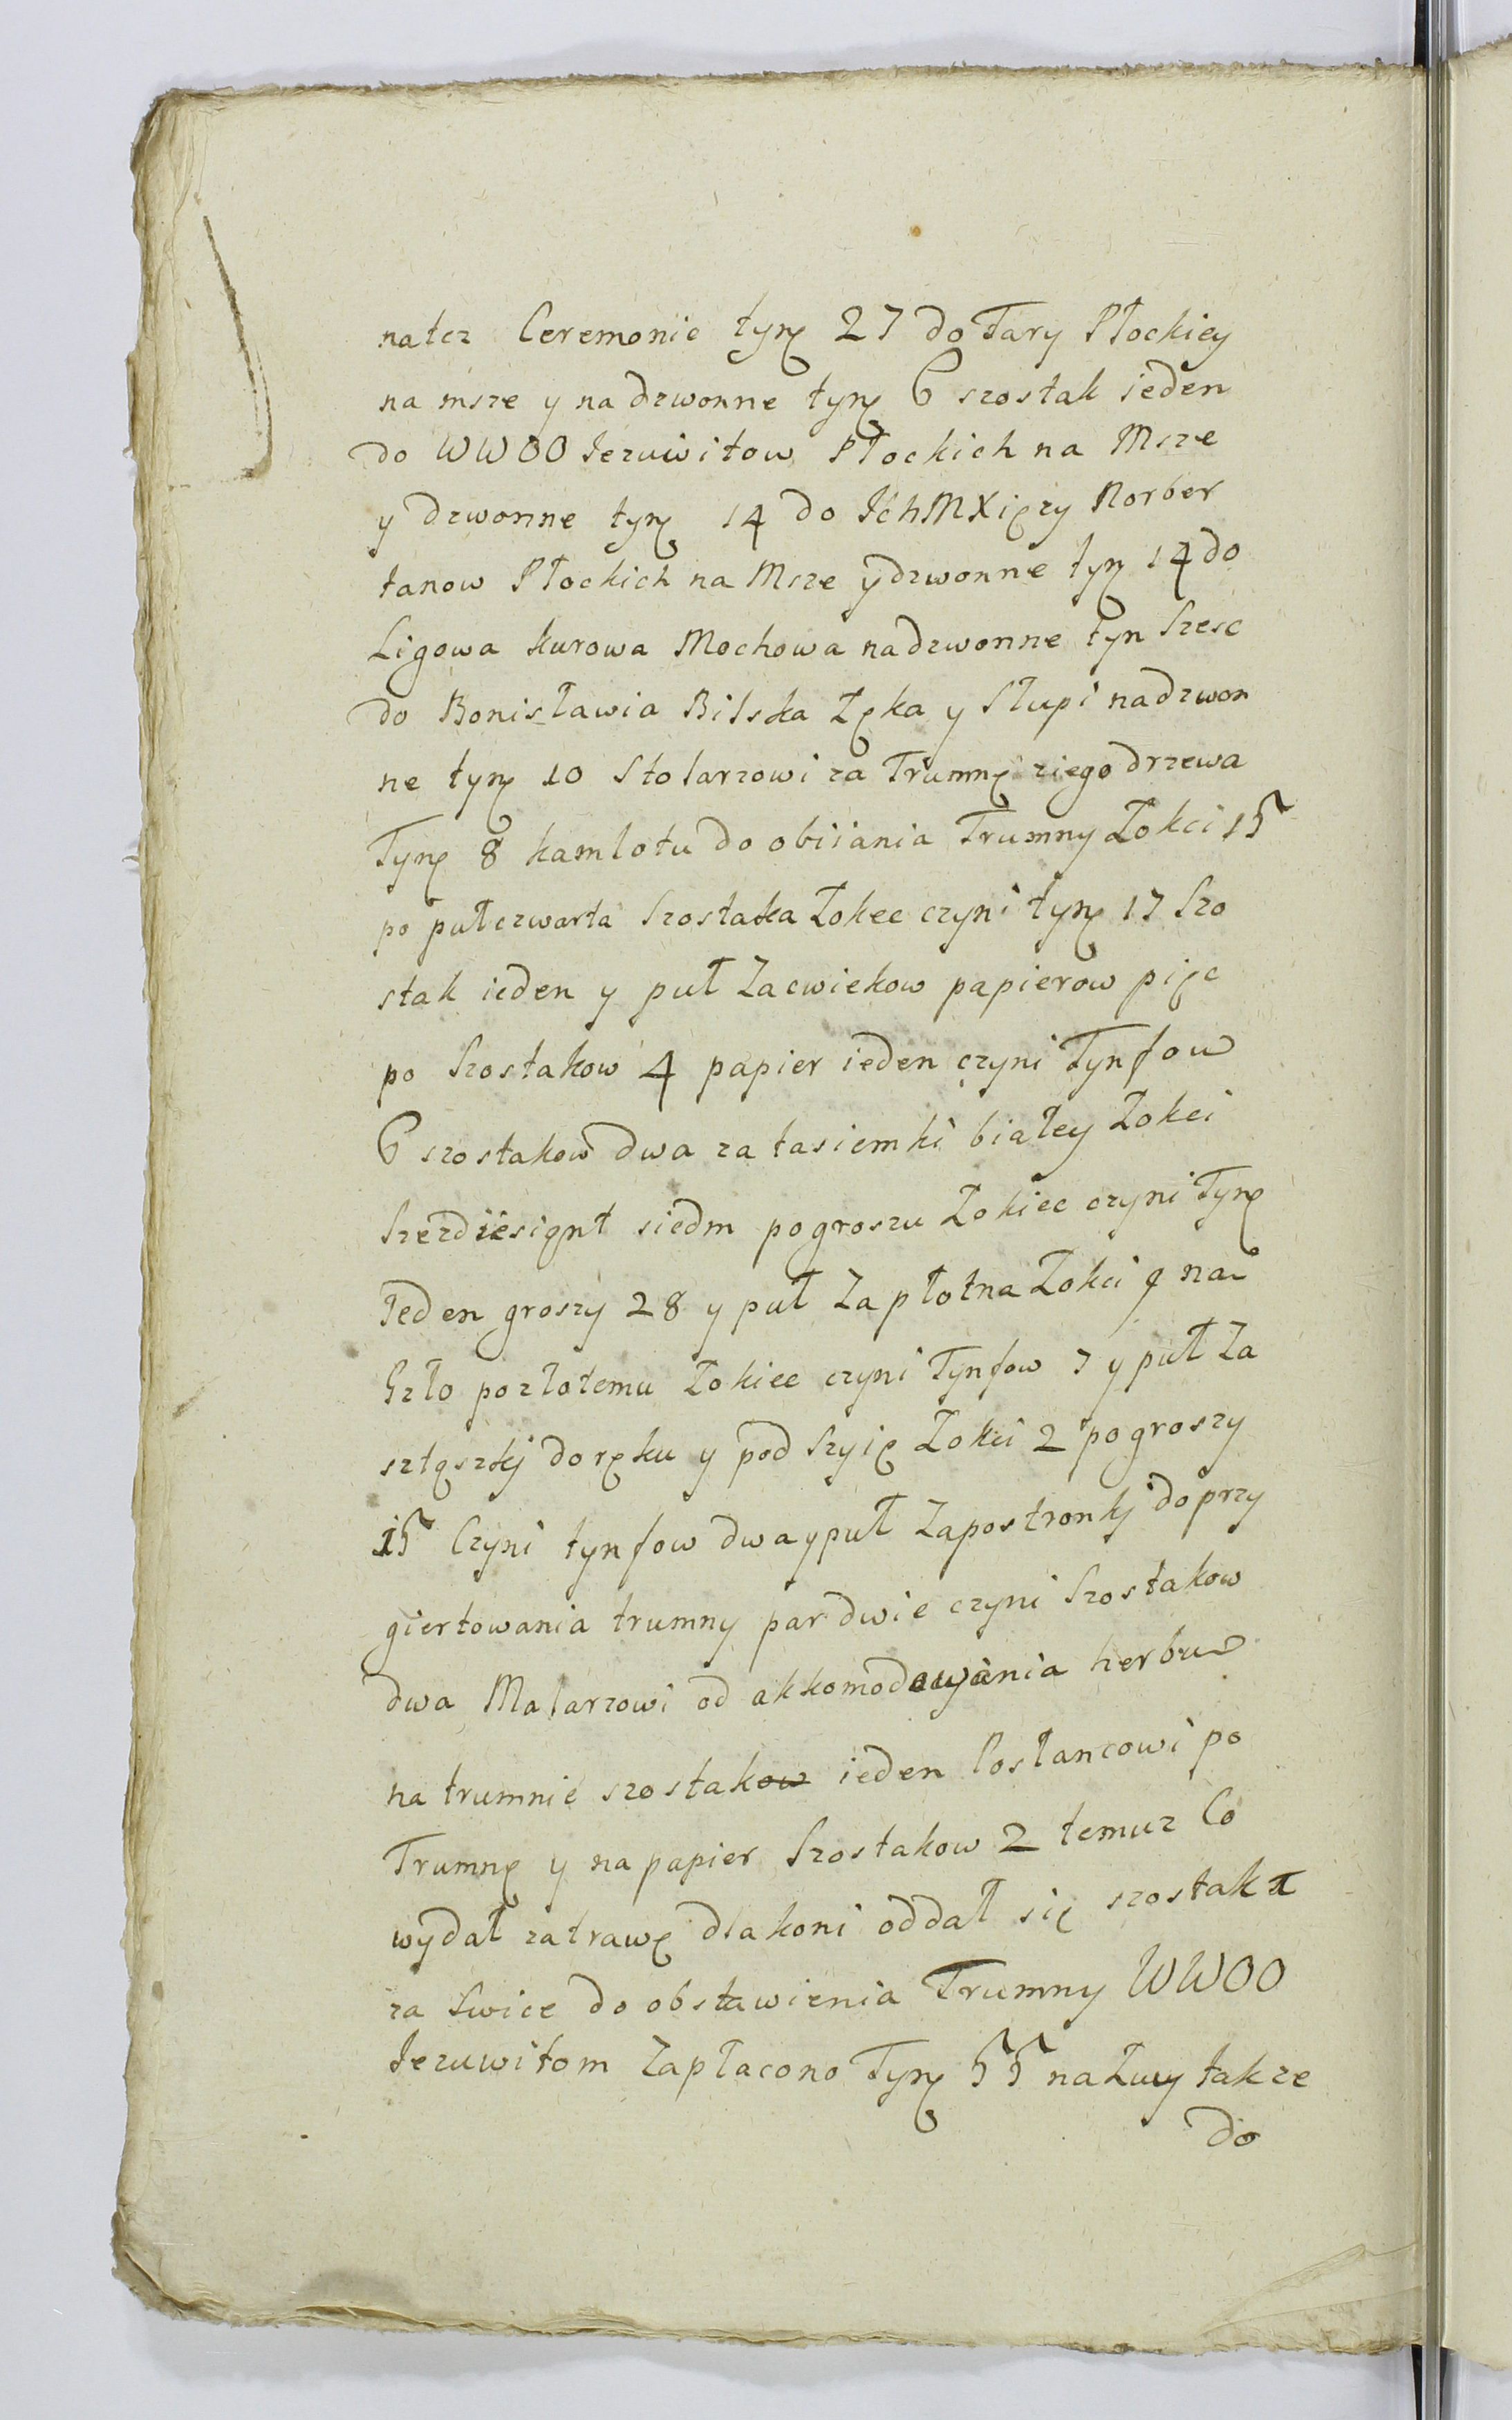 natcz Ceremonie tynf 27 do Fary Płockiey
na msze y na dzwonne tynf 6 szostak ieden
do WWOO Jezuwitow Płockich na Msze
y dzwonne tynf 14 do IchMXięzy Norber
tanow Płockich na Msze y dzwonne tynf 14 do
Ligowa Kurowa Mochowa na dzwonne tyn Szesc
do Bonisławia Bilska Łęka y Słupi na dzwon
ne tynf 10 Stolarzowi za Trumnę ziego drzewa
Tynf 8 kamlotu do obiiania Trumny Łokci 15
po puł czwarta Szostaka Łokec czyni tynf 17 Szo
stak ieden y puł Za cwiekow papierow pięc
po Szostakow 4 papier ieden czyni Tynfow
6 szostakow dwa za tasiemki białey Łokci
Szezdziesiąnt siedm po groszu Łokiec czyni Tynf
Jeden groszy 28 y puł Za płotna Łokci 9 na
Gzło po złotemu Łokiec czyni Tynfow 7 y puł Za
sztąszkj do ręku y pod Szyię Łokci 2 po groszy
15 Czyni tynfow dwa y puł Za postronkj do przy
giertowania trumny par dwie czyni Szostakow
dwa Malarzowi od akkomodowania herbuw
na trumnie szostakow ieden Posłancowi po
Trumnę y na papier Szostakow 2 temuz Co
wydał za trawę dla koni oddał się szostak 1
za Swice do obstawienia Trumny WWOO
Jezuwitom Zapłacono Tynf 55 na Łuy takze
do